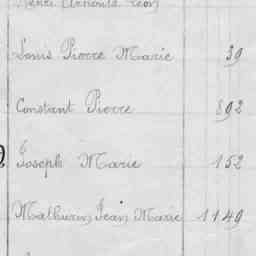 Henri Arnould Léon
Louis Pierre Marie 39
Constant Pierre 892
Joseph Marie 152
Mathurin Jean Marie 1149